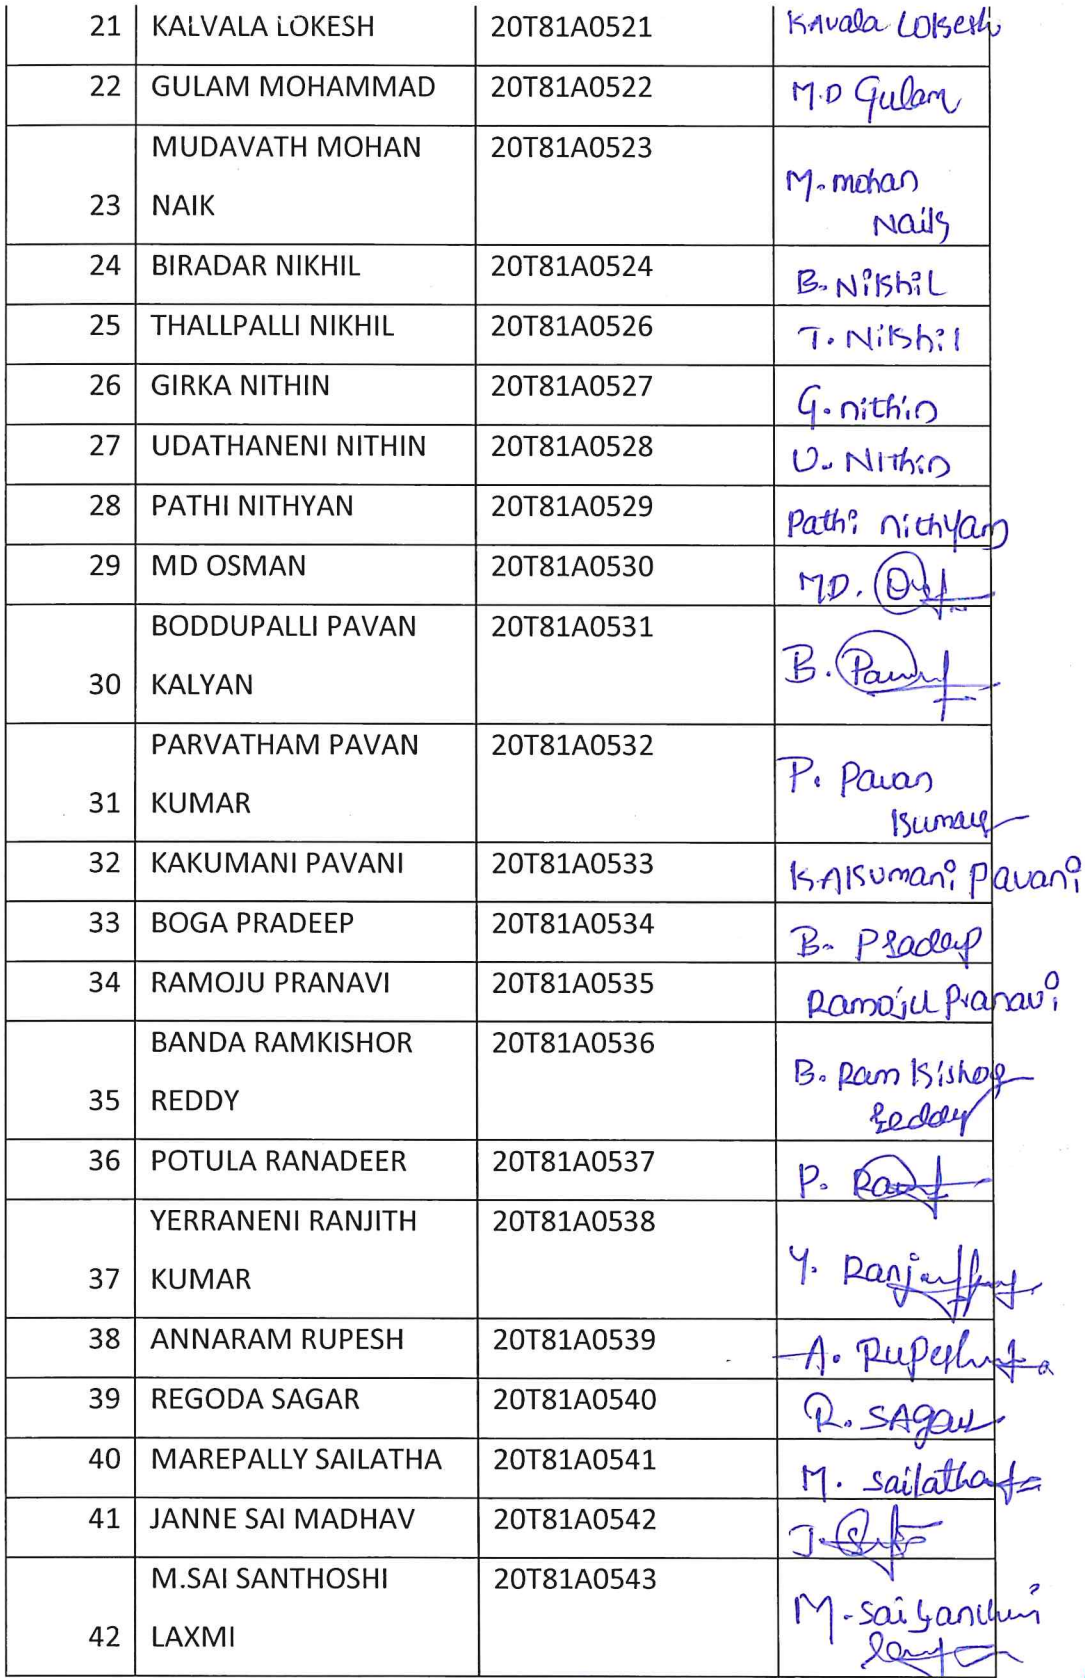 21 KALVALA LOKESH 20T81A0521 KAvala LOKesh
22 GULAM MOHAMMAD 20T81A0522 M.D Gulam
MUDAVATH MOHAN 20T81A0523
23 NAIK M. mohan
Naik
24 BIRADAR NIKHIL 20T81A0524 B. Nikhil
25 THALLPALLI NIKHIL 20T81A0526 T. Nikhil
26 GIRKA NITHIN 20T81A0527 G. nithin
27 UDATHANENI NITHIN 20T81A0528 U. Nithin
28 PATHI NITHYAN 20T81A0529 Pathi nithyan
29 MD OSMAN 20T81A0530 MD.
BODDUPALLI PAVAN 20T81A0531
30 KALYAN B.
PARVATHAM PAVAN 20T81A0532
31 KUMAR P. Pavan
kumar
32 KAKUMANI PAVANI 20T81A0533 KAKumani Pavani
33 BOGA PRADEEP 20T81A0534 B. Pradeep
34 RAMOJU PRANAVI 20T81A0535 Ramoju Pranavi
BANDA RAMKISHOR 20T81A0536
35 REDDY B. Ram Kishor
reddy
36 POTULA RANADEER 20T81A0537 P.
YERRANENI RANJITH 20T81A0538
37 KUMAR Y.
38 ANNARAM RUPESH 20T81A0539 A. Rupesh
39 REGODA SAGAR 20T81A0540 R. SAgar
40 MAREPALLY SAILATHA 20T81A0541 M. Sailatha
41 JANNE SAI MADHAV 20T81A0542 J.
M.SAI SANTHOSHI 20T81A0543
42 LAXMI M.